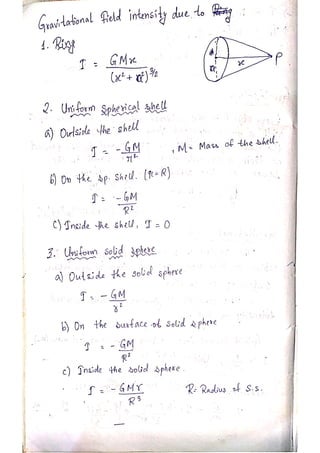 Gravitational field intensity due to Ring
1. Ring
I = GMx / (x² + r²)^3/2
r x P
2. Uniform Spherical shell
a) Outside the shell
I = -GM / r² , M = Mass of the shell.
b) On the sp. shell. (r=R)
I = -GM / R²
c) Inside the shell, I = 0
3. Uniform solid sphere
a) Outside the solid sphere
I = - GM / r²
b) On the surface of solid sphere
I = - GM / R²
c) Inside the solid sphere.
I = - GMr / R³ R = Radius of S.S.